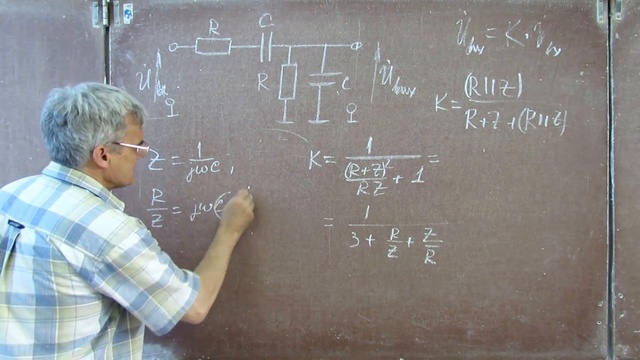 R C
U̇вх R C U̇вых
U̇вых = K · U̇вх
K = (R||Z) / (R+Z+(R||Z))
Z = 1/(jωC) ;
R/Z = jω(
K = 1 / ((R+Z)²/(RZ) + 1) =
= 1 / (3 + R/Z + Z/R)